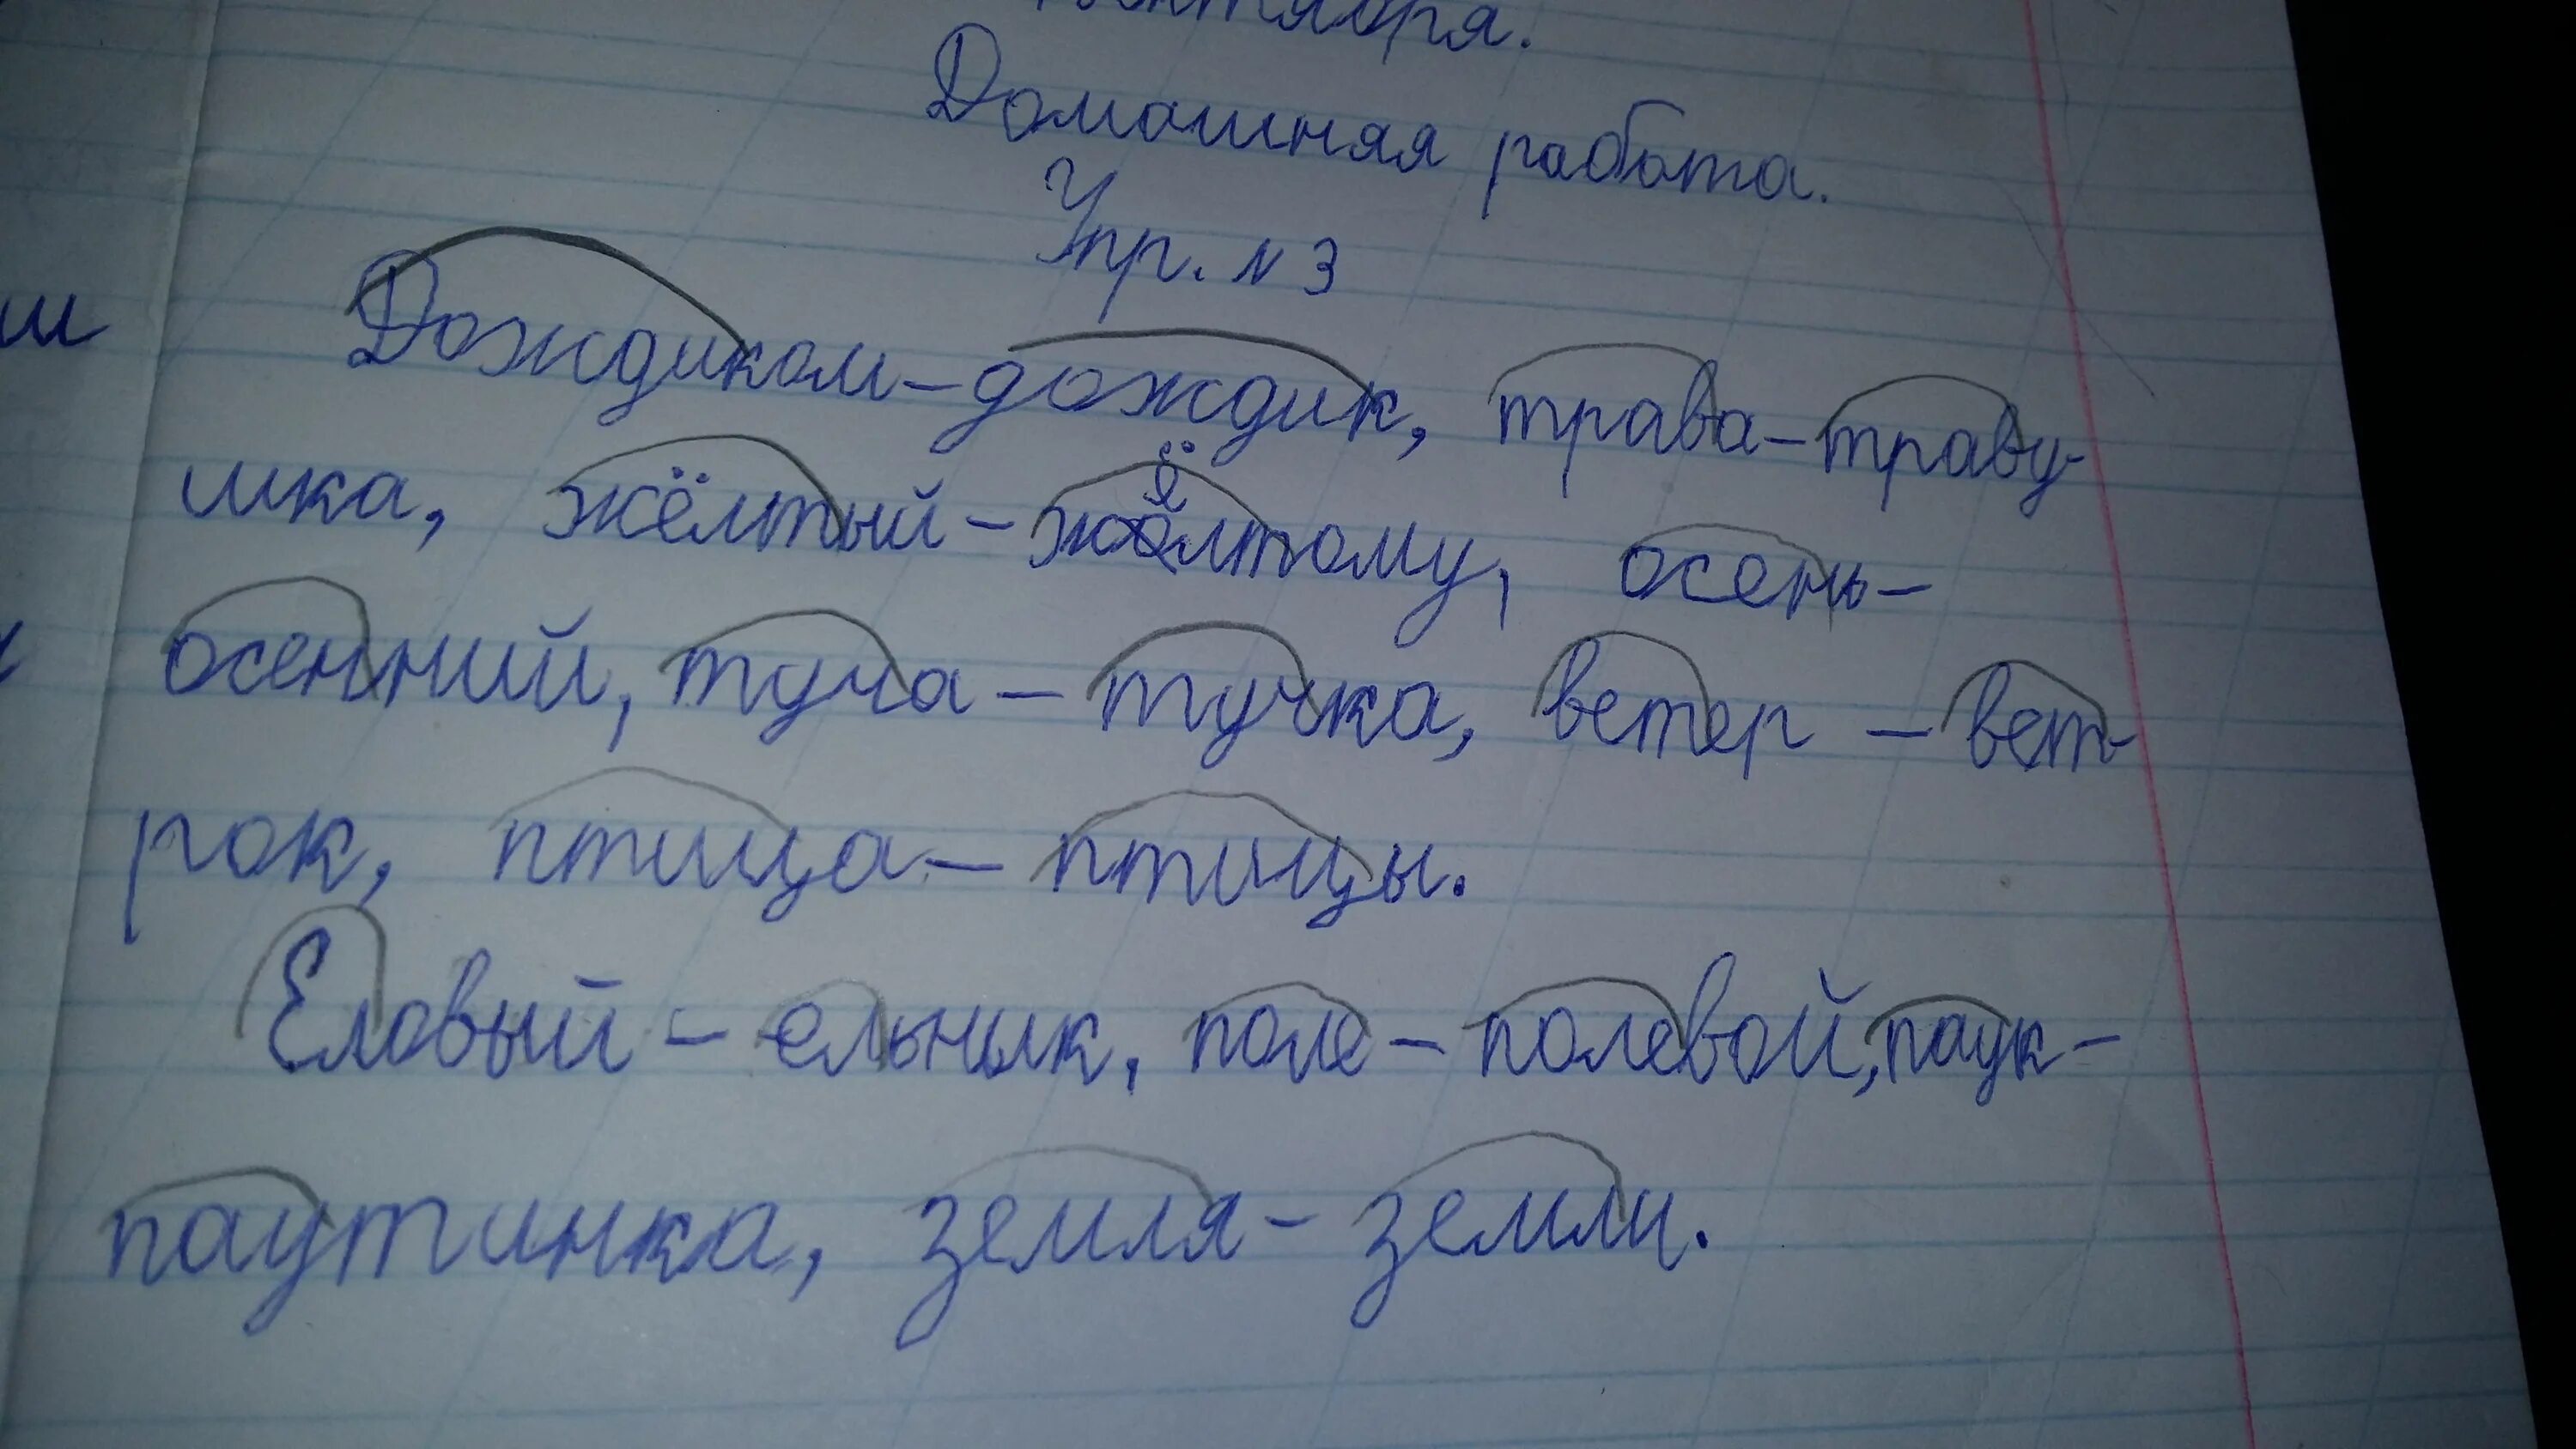 Домашняя работа.
Упр. № 3
Дождиком-дождик, трава-траву-
шка, жёлтый-жёлтому, осень-
осенний, туча-тучка, ветер-вет-
рок, птица-птицы.
Еловый-ельник, поле-полевой, паук-
паутинка, земля-земли.